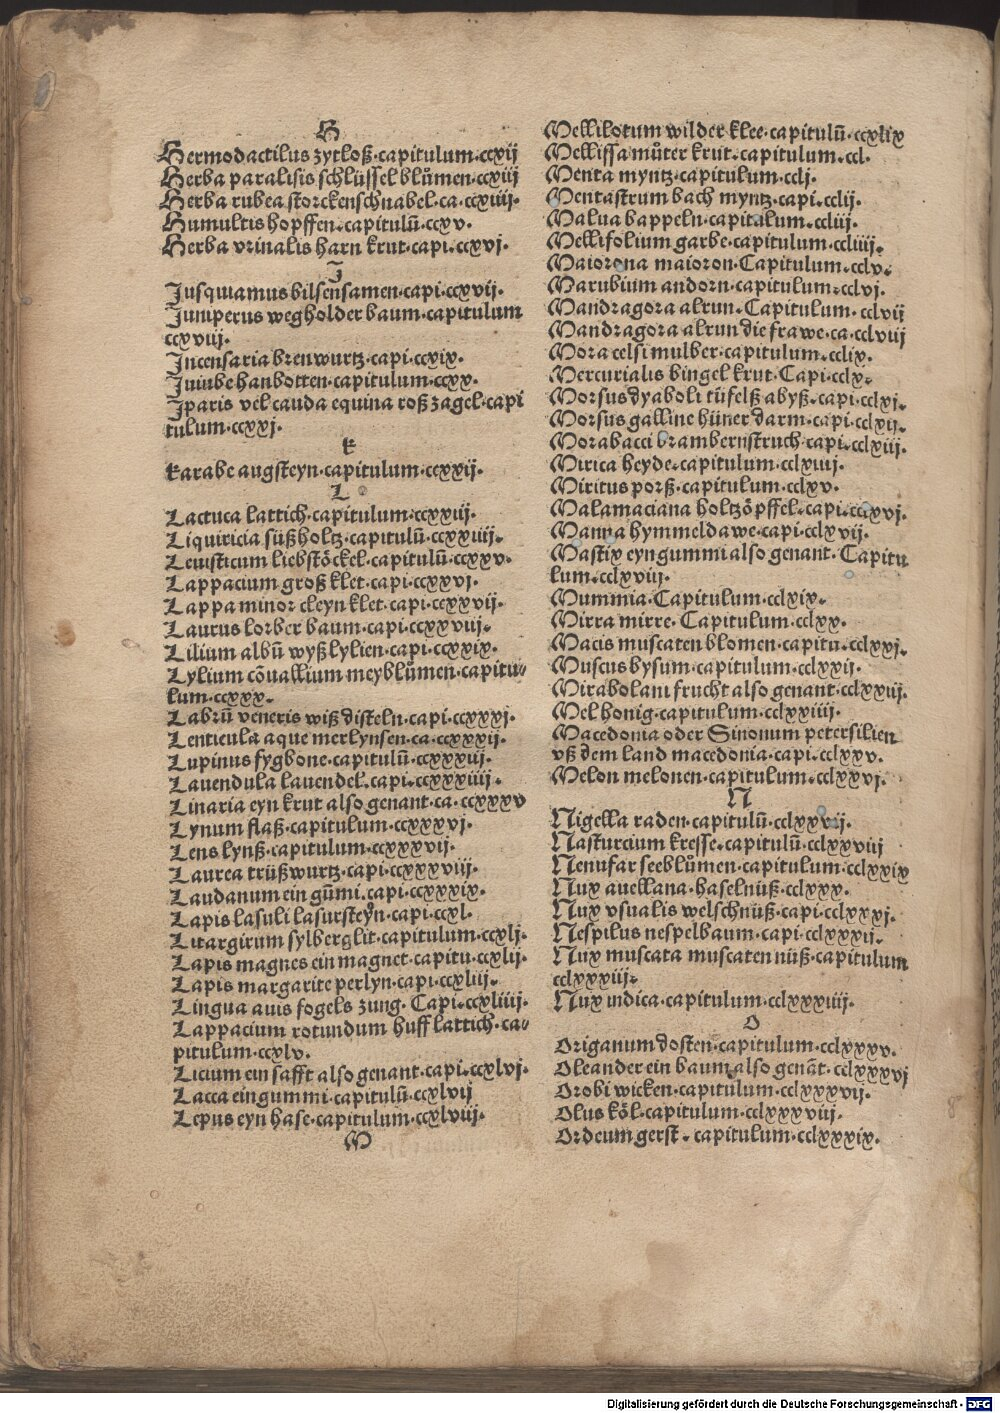 H
Hermodactilus zytloß·capitulum·ccxij
Herba paralisis schlüssel blůmen·ccxiij
Herba rubea storckenschnabel·ca·ccxiiij·
Humultis hopffen·capitulū·ccxv·
Herba vrinalis harn krut·capi·ccxvj·
J
Jusquiamus bilsensamen·capi·ccxvij·
Juniperus wegholder baum·capitulum
ccxviij·
Jncensaria brenwurtz·capi·ccxix·
Juiube hanbotten·capitulum·ccxx·
Jparis vel cauda equina roß zagel·capi
tulum·ccxxj·
K
Karabe augsteyn·capitulum·ccxxij·
L
Lactuca lattich·capitulum·ccxxiij·
Liquiricia süßholtz·capitulū·ccxxiiij·
Leuisticum liebstöckel·capitulū·ccxxv·
Lappacium groß klet·capi·ccxxvj·
Lappa minor cleyn klet·capi·ccxxvij·
Laurus lorber baum·capi·ccxxviij·
Lilium albū wyß lylien·capi·ccxxix·
Lylium cōuallium meyblůmen·capitu⸗
lum·ccxxx·
Labrū veneris wiß disteln·capi·ccxxxj·
Lenticula aque merlynsen·ca·ccxxxij·
Lupinus fygbone·capitulū·ccxxxiij·
Lauendula lauendel·capi·ccxxxiiij·
Linaria eyn krut also genant·ca·ccxxxv
Lynum flaß·capitulum·ccxxxvj·
Lens lynß·capitulum·ccxxxvij·
Laurea trüßwurtz·capi·ccxxxviij·
Laudanum ein gūmi·capi·ccxxxix·
Lapis lasuli lasursteyn·capi·ccxl·
Litargirum sylberglit·capitulum·ccxlj·
Lapis magnes ein magnet·capitu·ccxlij·
Lapis margarite perlyn·capi·ccxliij·
Lingua auis fogels zung·Capi·ccxliiij·
Lappacium rotundum huff lattich·ca⸗
pitulum·ccxlv·
Licium ein safft also genant·capi·ccxlvj·
Lacca ein gummi·capitulū·ccxlvij
Lepus eyn hase·capitulum·ccxlviij·
M
Mellilotum wilder klee·capitulū·ccxlix
Mellissa můter krut·capitulum·ccl·
Menta myntz·capitulum·cclj·
Mentastrum bach myntz·capi·cclij·
Malua bappeln·capitulum·ccliij·
Mellifolium garbe·capitulum·ccliiij·
Maiorona maioron·Capitulum·cclv·
Marubium andorn·capitulum·cclvj·
Mandragora alrun·Capitulum·cclvij
Mandragora alrun die frawe·ca·cclviij
Mora celsi mulber·capitulum·cclix·
Mercurialis bingel krut·Capi·cclx·
Morsus dyaboli tüfelß abyß·capi·cclxj·
Morsus galline hüner darm·capi·cclxij·
Morabacci brambernstruch·capi·cclxiij·
Mirica heyde·capitulum·cclxiiij·
Miritus porß·capitulum·cclxv·
Malamaciana holtzöpffel·capi·cclxvj·
Manna hymmeldawe·capi·cclxvij·
Mastix eyn gummi also genant·Capitu
lum·cclxviij·
Mummia·Capitulum·cclxix·
Mirra mirre·Capitulum·cclxx·
Macis muscaten blomen·capitu·cclxxj·
Muscus bysum·capitulum·cclxxij·
Mirabolani frucht also genant·cclxxiij·
Mel honig·capitulum·cclxxiiij·
Macedonia oder Sinonum petersilien
vß dem land macedonia·capi·cclxxv·
Melon melonen·capitulum·cclxxvj·
N
Nigella raden·capitulū·cclxxvij·
Nasturcium kresse·capitulū·cclxxviij
Nenufar seeblůmen·capitulum·cclxxix
Nux auellana·haselnüß·cclxxx·
Nux vsualis welschnüß·capi·cclxxxj·
Nespilus nespelbaum·capi·cclxxxij·
Nux muscata muscaten nüß·capitulum
cclxxxiij·
Nux indica·capitulum·cclxxxiiij·
O
Origanum dosten·capitulum·cclxxxv·
Oleander ein baum also genāt·cclxxxvj
Orobi wicken·capitulum·cclxxxvij·
Olus köl·capitulum·cclxxxviij·
Ordeum gerst·capitulum·cclxxxix·
Digitalisierung gefördert durch die Deutsche Forschungsgemeinschaft - DFG